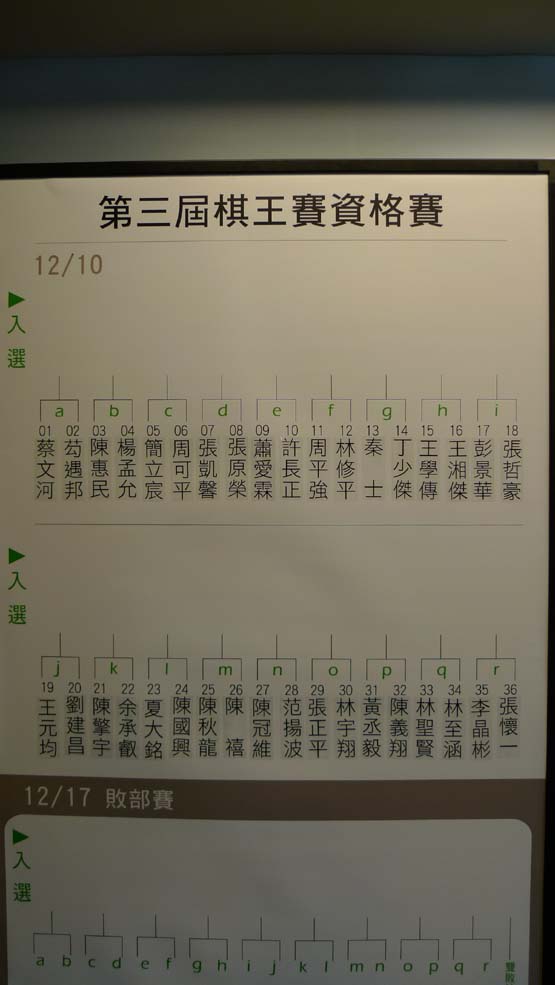 第三屆棋王賽資格賽
12/10
▶入選
a b c d e f g h i
01 02 03 04 05 06 07 08 09 10 11 12 13 14 15 16 17 18
蔡文河 芶遇邦 陳惠民 楊孟允 簡立宸 周可平 張凱馨 張原榮 蕭愛霖 許長正 周平強 林修平 秦士 丁少傑 王學傳 王湘傑 彭景華 張哲豪
▶入選
j k l m n o p q r
19 20 21 22 23 24 25 26 27 28 29 30 31 32 33 34 35 36
王元均 劉建昌 陳擎宇 余承叡 夏大銘 陳國興 陳秋龍 陳禧 陳冠維 范揚波 張正平 林宇翔 黃丞毅 陳義翔 林聖賢 林至涵 李晶彬 張懷一
12/17 敗部賽
▶入選
a b c d e f g h i j k l m n o p q r 雙敗